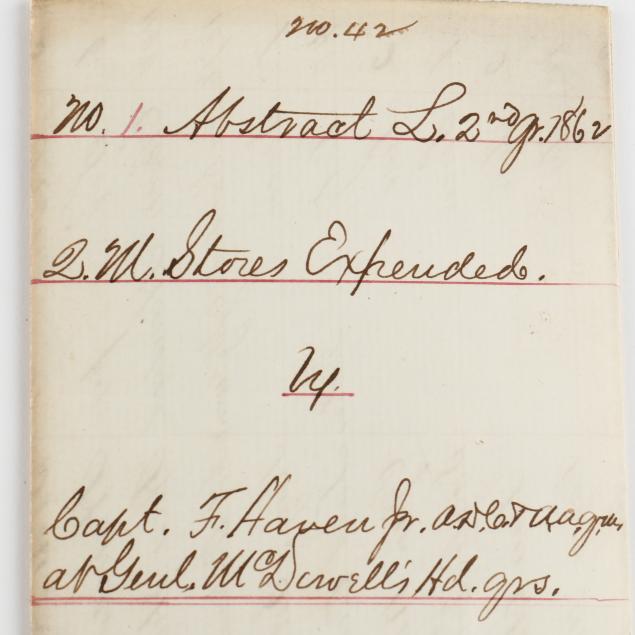 no. 42
No. 1. Abstract L. 2nd qr. 1862
Q. M. Stores Expended.
by
Capt. F. Haven Jr. A.D.C. & A.A.Q.M.
at Genl. McDowell's Hd. qrs.